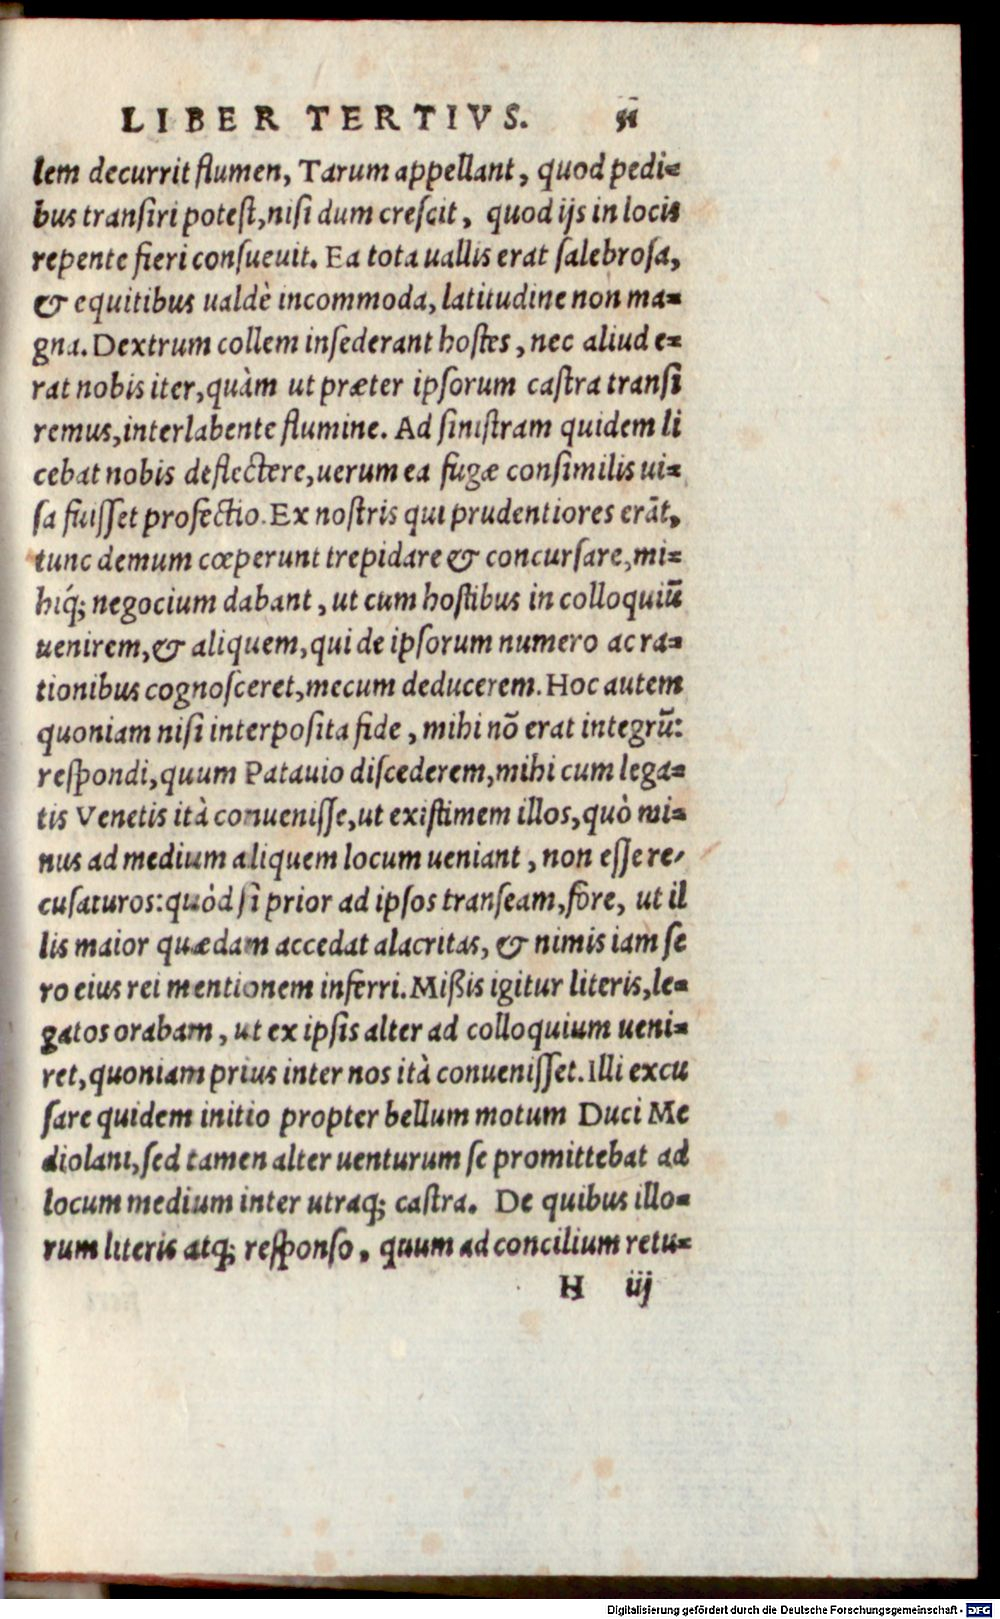 LIBER TERTIVS.
lem decurrit flumen, Tarum appellant, quod pedi=
bus transiri potest, nisi dum crescit, quod ijs in locis
repente fieri consueuit. Ea tota uallis erat salebrosa,
& equitibus ualdè incommoda, latitudine non ma=
gna. Dextrum collem insederant hostes, nec aliud e=
rat nobis iter, quàm ut præter ipsorum castra transi
remus, interlabente flumine. Ad sinistram quidem li
cebat nobis deflectere, uerum ea fugæ consimilis ui=
sa fuisset profectio. Ex nostris qui prudentiores erāt,
tunc demum cœperunt trepidare & concursare, mi=
hiq́; negocium dabant, ut cum hostibus in colloquiū
uenirem, & aliquem, qui de ipsorum numero ac ra=
tionibus cognosceret, mecum deducerem. Hoc autem
quoniam nisi interposita fide, mihi nō erat integrū:
respondi, quum Patauio discederem, mihi cum lega=
tis Venetis ità conuenisse, ut existimem illos, quò mi=
nus ad medium aliquem locum ueniant, non esse re=
cusaturos: quòd si prior ad ipsos transeam, fore, ut il
lis maior quædam accedat alacritas, & nimis iam se
ro eius rei mentionem inferri. Mißis igitur literis, le=
gatos orabam, ut ex ipsis alter ad colloquium ueni=
ret, quoniam prius inter nos ità conuenisset. Illi excu
sare quidem initio propter bellum motum Duci Me
diolani, sed tamen alter uenturum se promittebat ad
locum medium inter utraq; castra. De quibus illo=
rum literis atq; responso, quum ad concilium retu=
H iij
Digitalisierung gefördert durch die Deutsche Forschungsgemeinschaft - DFG